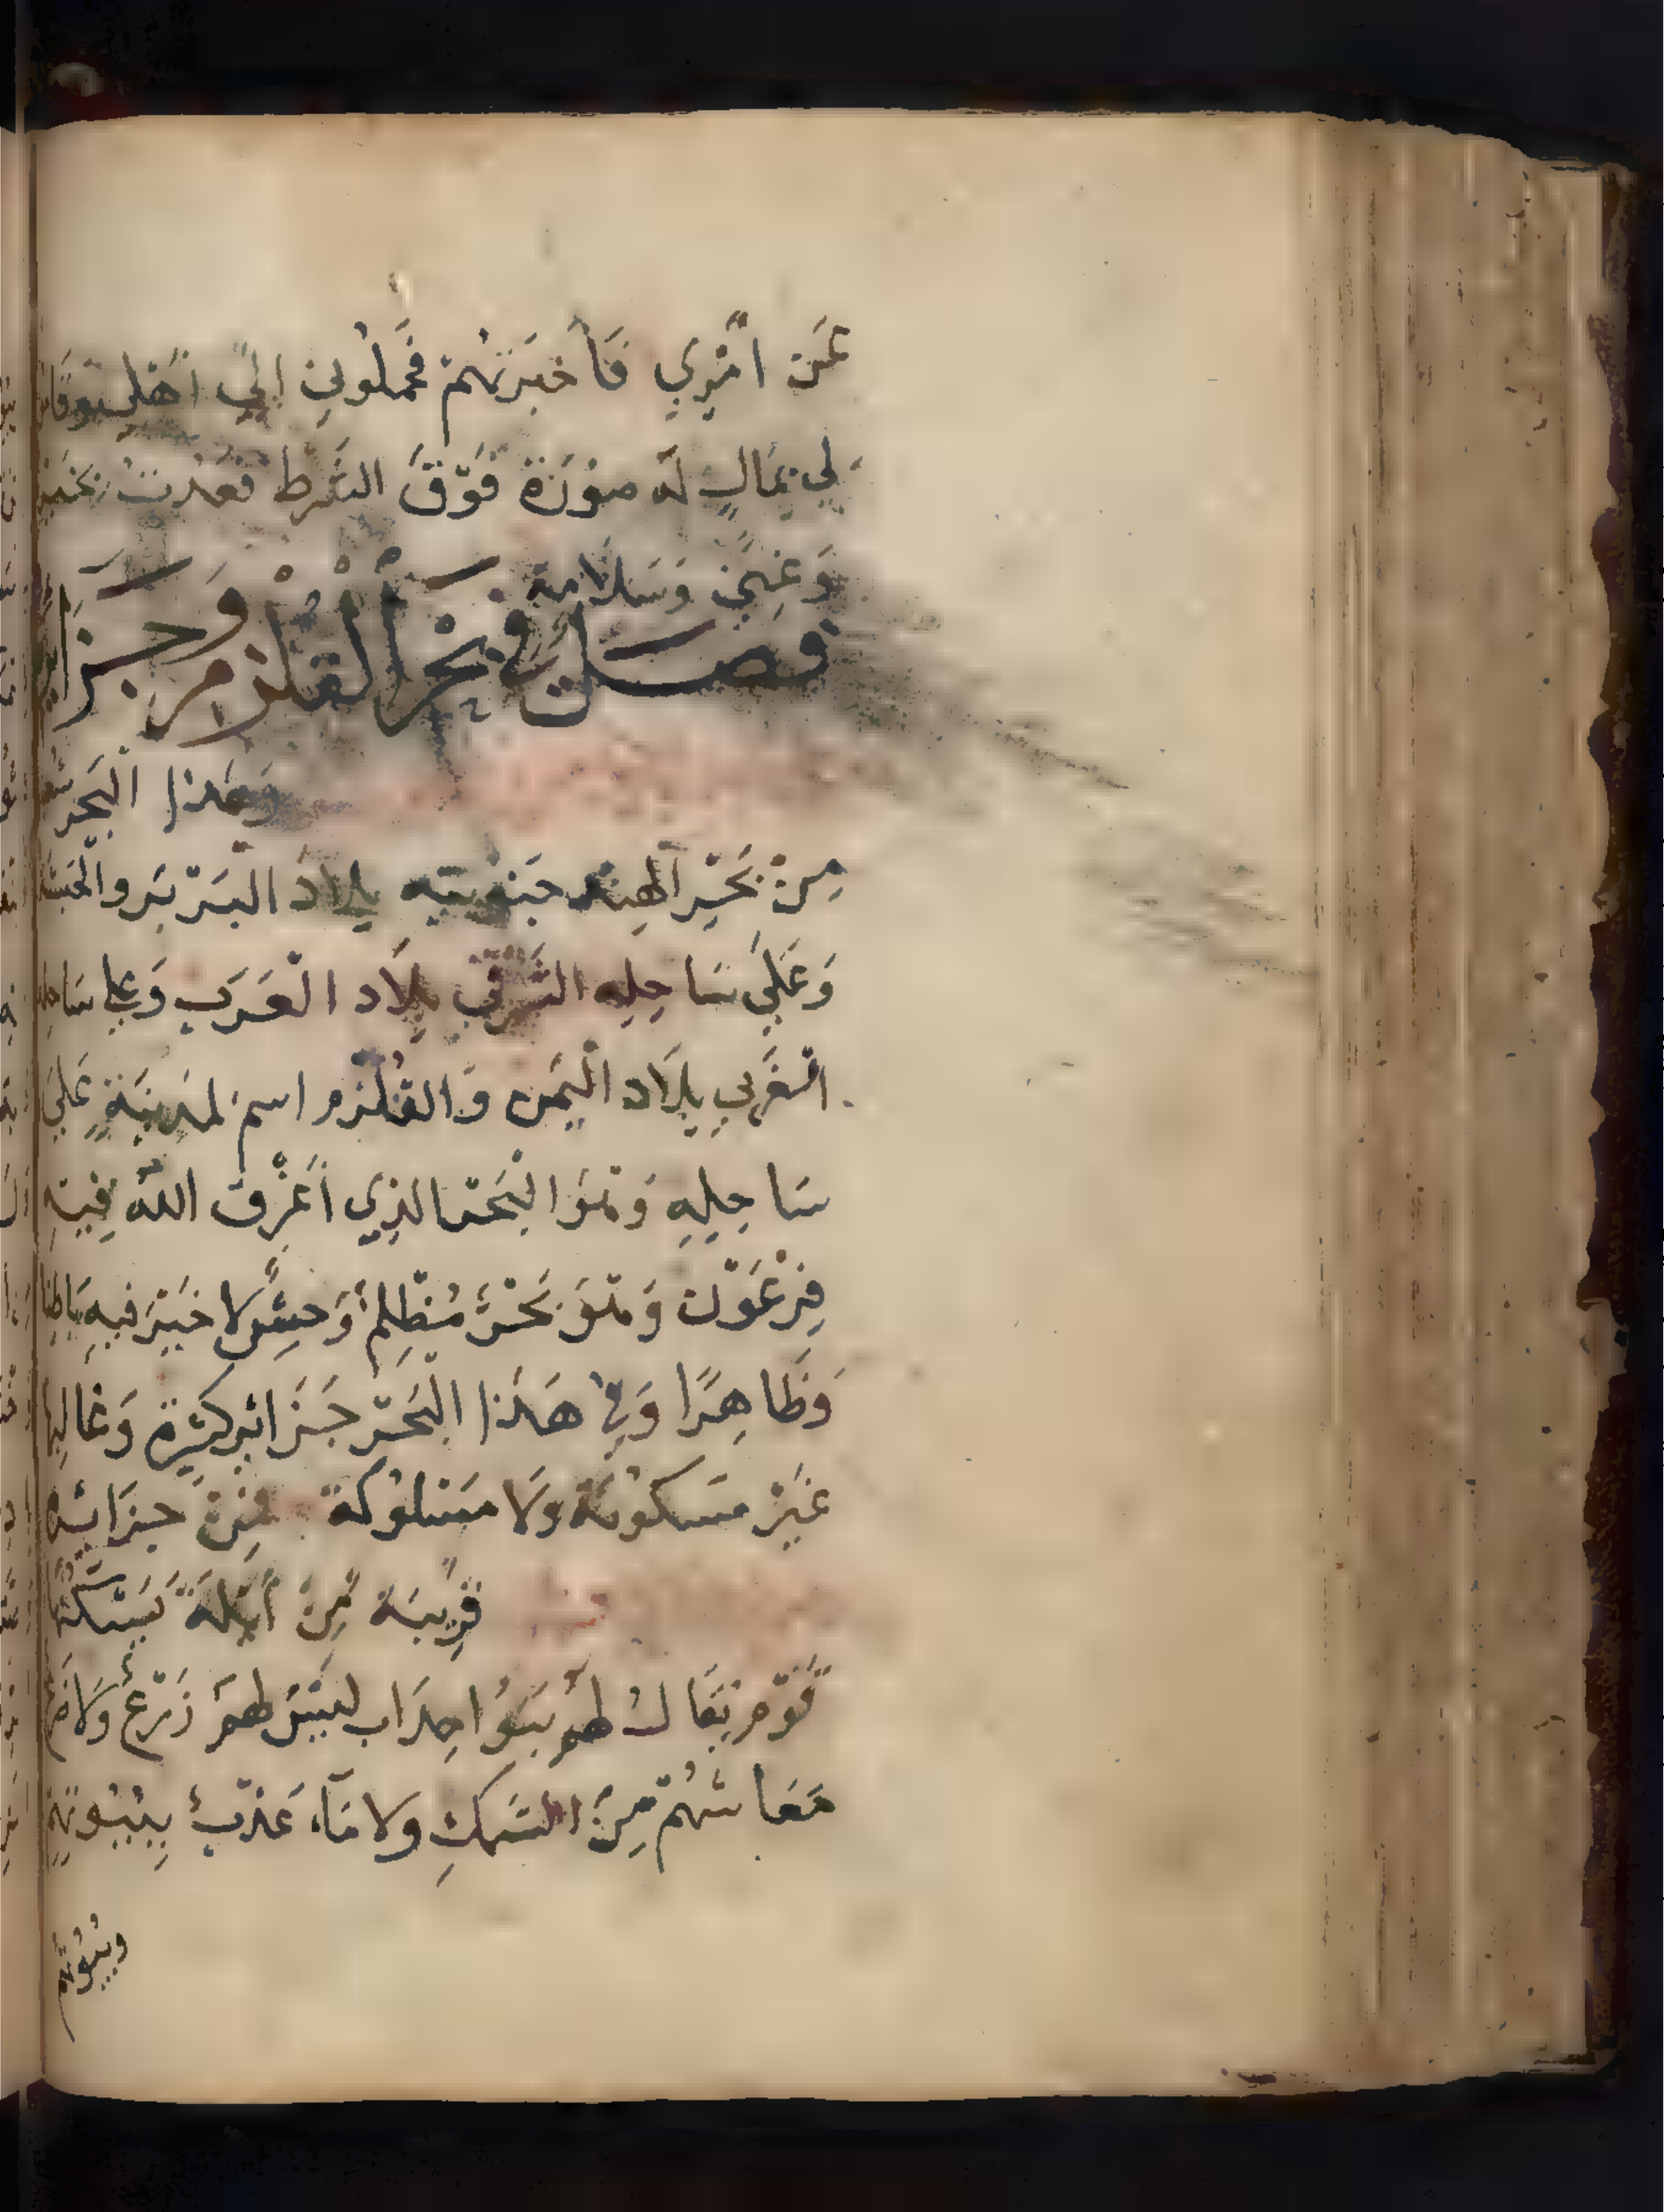 عَن امْرِي فَأخبَرتهُم فحملُوني الي أهلي
لي بمَالٍ له صورَة فَوْقَ الشرط فعدت بخير
وَغِنيً وَسَلامة
فصل في بَحْر القلزم وجزايره
وَهَذا البَحر شعبه
مِنْ بَحْرِ الهِند جنوبيّه بِلاد البَرْبَر والحبشة
وَعَلي سَاحِلِه الشرقي بِلاد العَرَب وَعلى ساحله
الغَربي بِلاد اليَمن وَالقُلْزم اسم لمدينَةٍ عَلي
سَاحِلِهِ وَهوَ البَحر الذِي أغْرق اللهُ فِيه
فِرْعَوْن وَهوَ بَحْرٌ مُظْلِمٌ وَحِشٌ لا خَيْرَ فيهِ بَاطِنا
وَظَاهِرًا وَفي هَذا البَحْر جَزَائر كثيْرة وَغالبها
غَيْرُ مَسكونَة وَلا مَسْلوُكة فمِنْ جزَائره
قَرِيبَة مِنْ أيْلَة يَسْكُنهَا
قَوْم يُقَالُ لهُم بَنوُا حِدَاب ليْسَ لهم زَرْعٌ وَلا ضرع
مَعَاشهُمْ مِنَ السَمكِ وَلا مَاء عَذبٌ بِبُيُوتهِم
وبيُوتهم